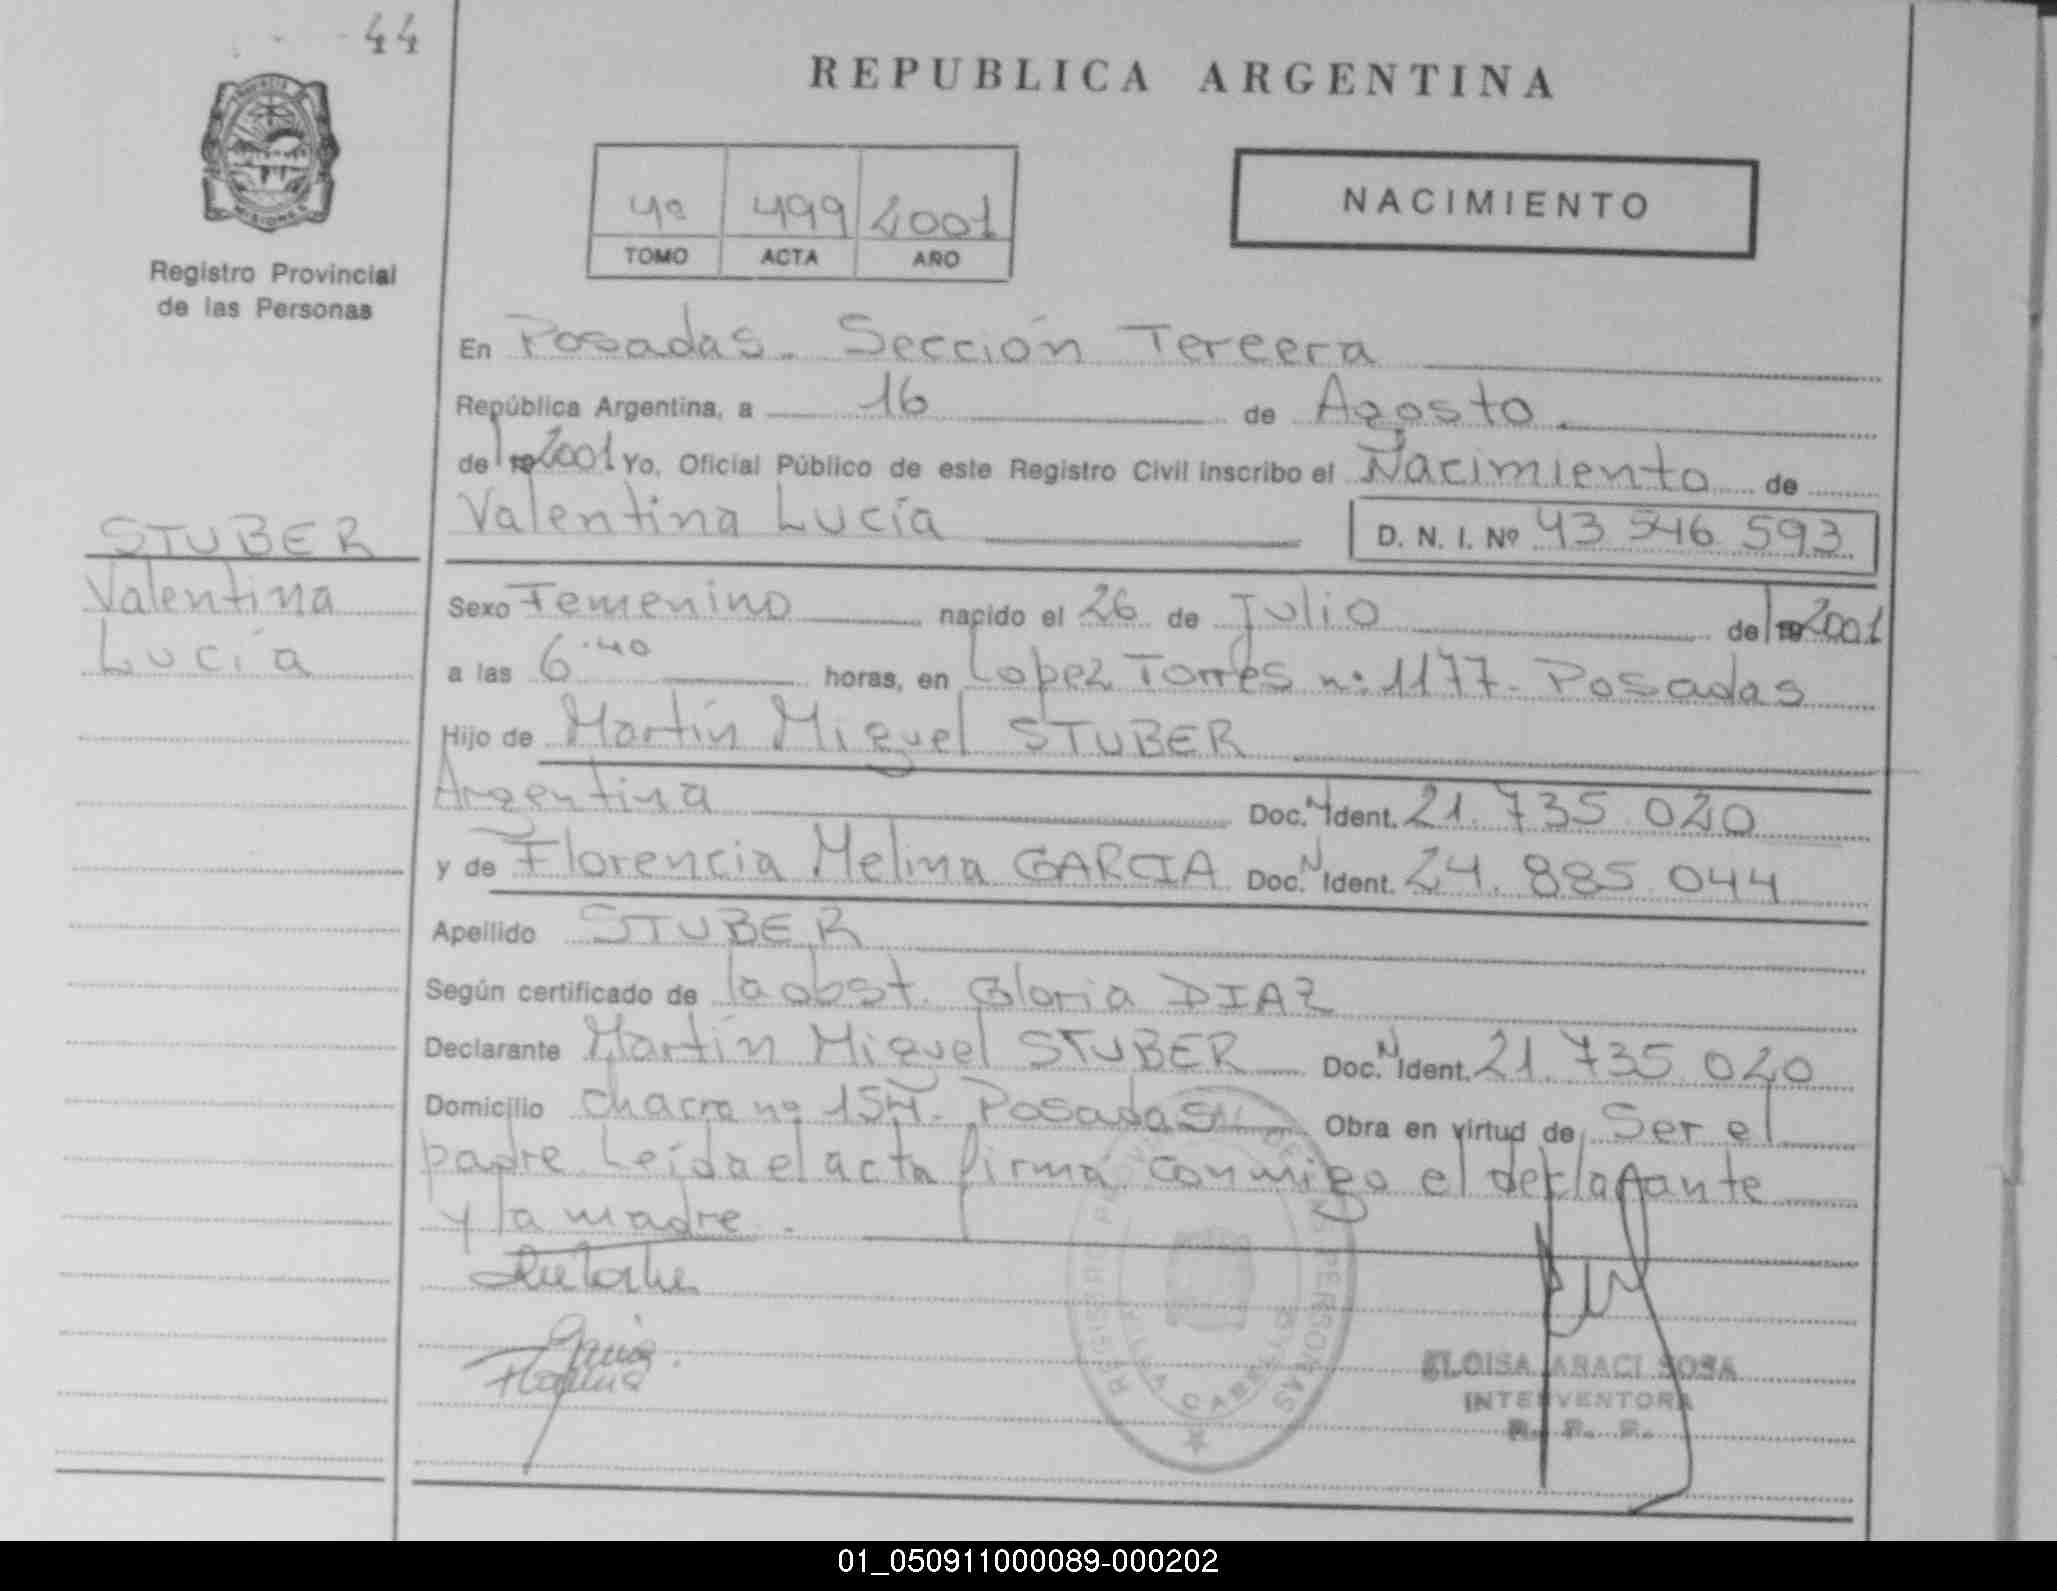 44
REPUBLICA ARGENTINA
MISIONES
Registro Provincial
de las Personas
4º 499 2001
TOMO ACTA AÑO
NACIMIENTO
En Posadas. Sección Tercera
República Argentina, a 16 de Agosto
de 19 2001 Yo, Oficial Público de este Registro Civil inscribo el Nacimiento de
Valentina Lucía D. N. I. Nº 43 546 593
STUBER
Valentina
Lucía
Sexo Femenino nacido el 26 de Julio de 19 2001
a las 6:40 horas, en Lopez Torres nº 1177- Posadas
Hijo de Martín Miguel STUBER
Argentina Doc. N Ident. 21.735.020
y de Florencia Melina GARCIA Doc. N Ident. 24.885.044
Apellido STUBER
Según certificado de la obst. Gloria DIAZ
Declarante Martín Miguel STUBER Doc. N Ident. 21.735.020
Domicilio Chacra nº 154. Posadas Obra en virtud de Ser el
padre Leída el acta firma conmigo el declarante
y la madre.
REGISTRO PERSONAS
VILLA CABELLO
García
ELOISA ARACI SOSA
INTERVENTORA
R. P. P.
01_050911000089-000202